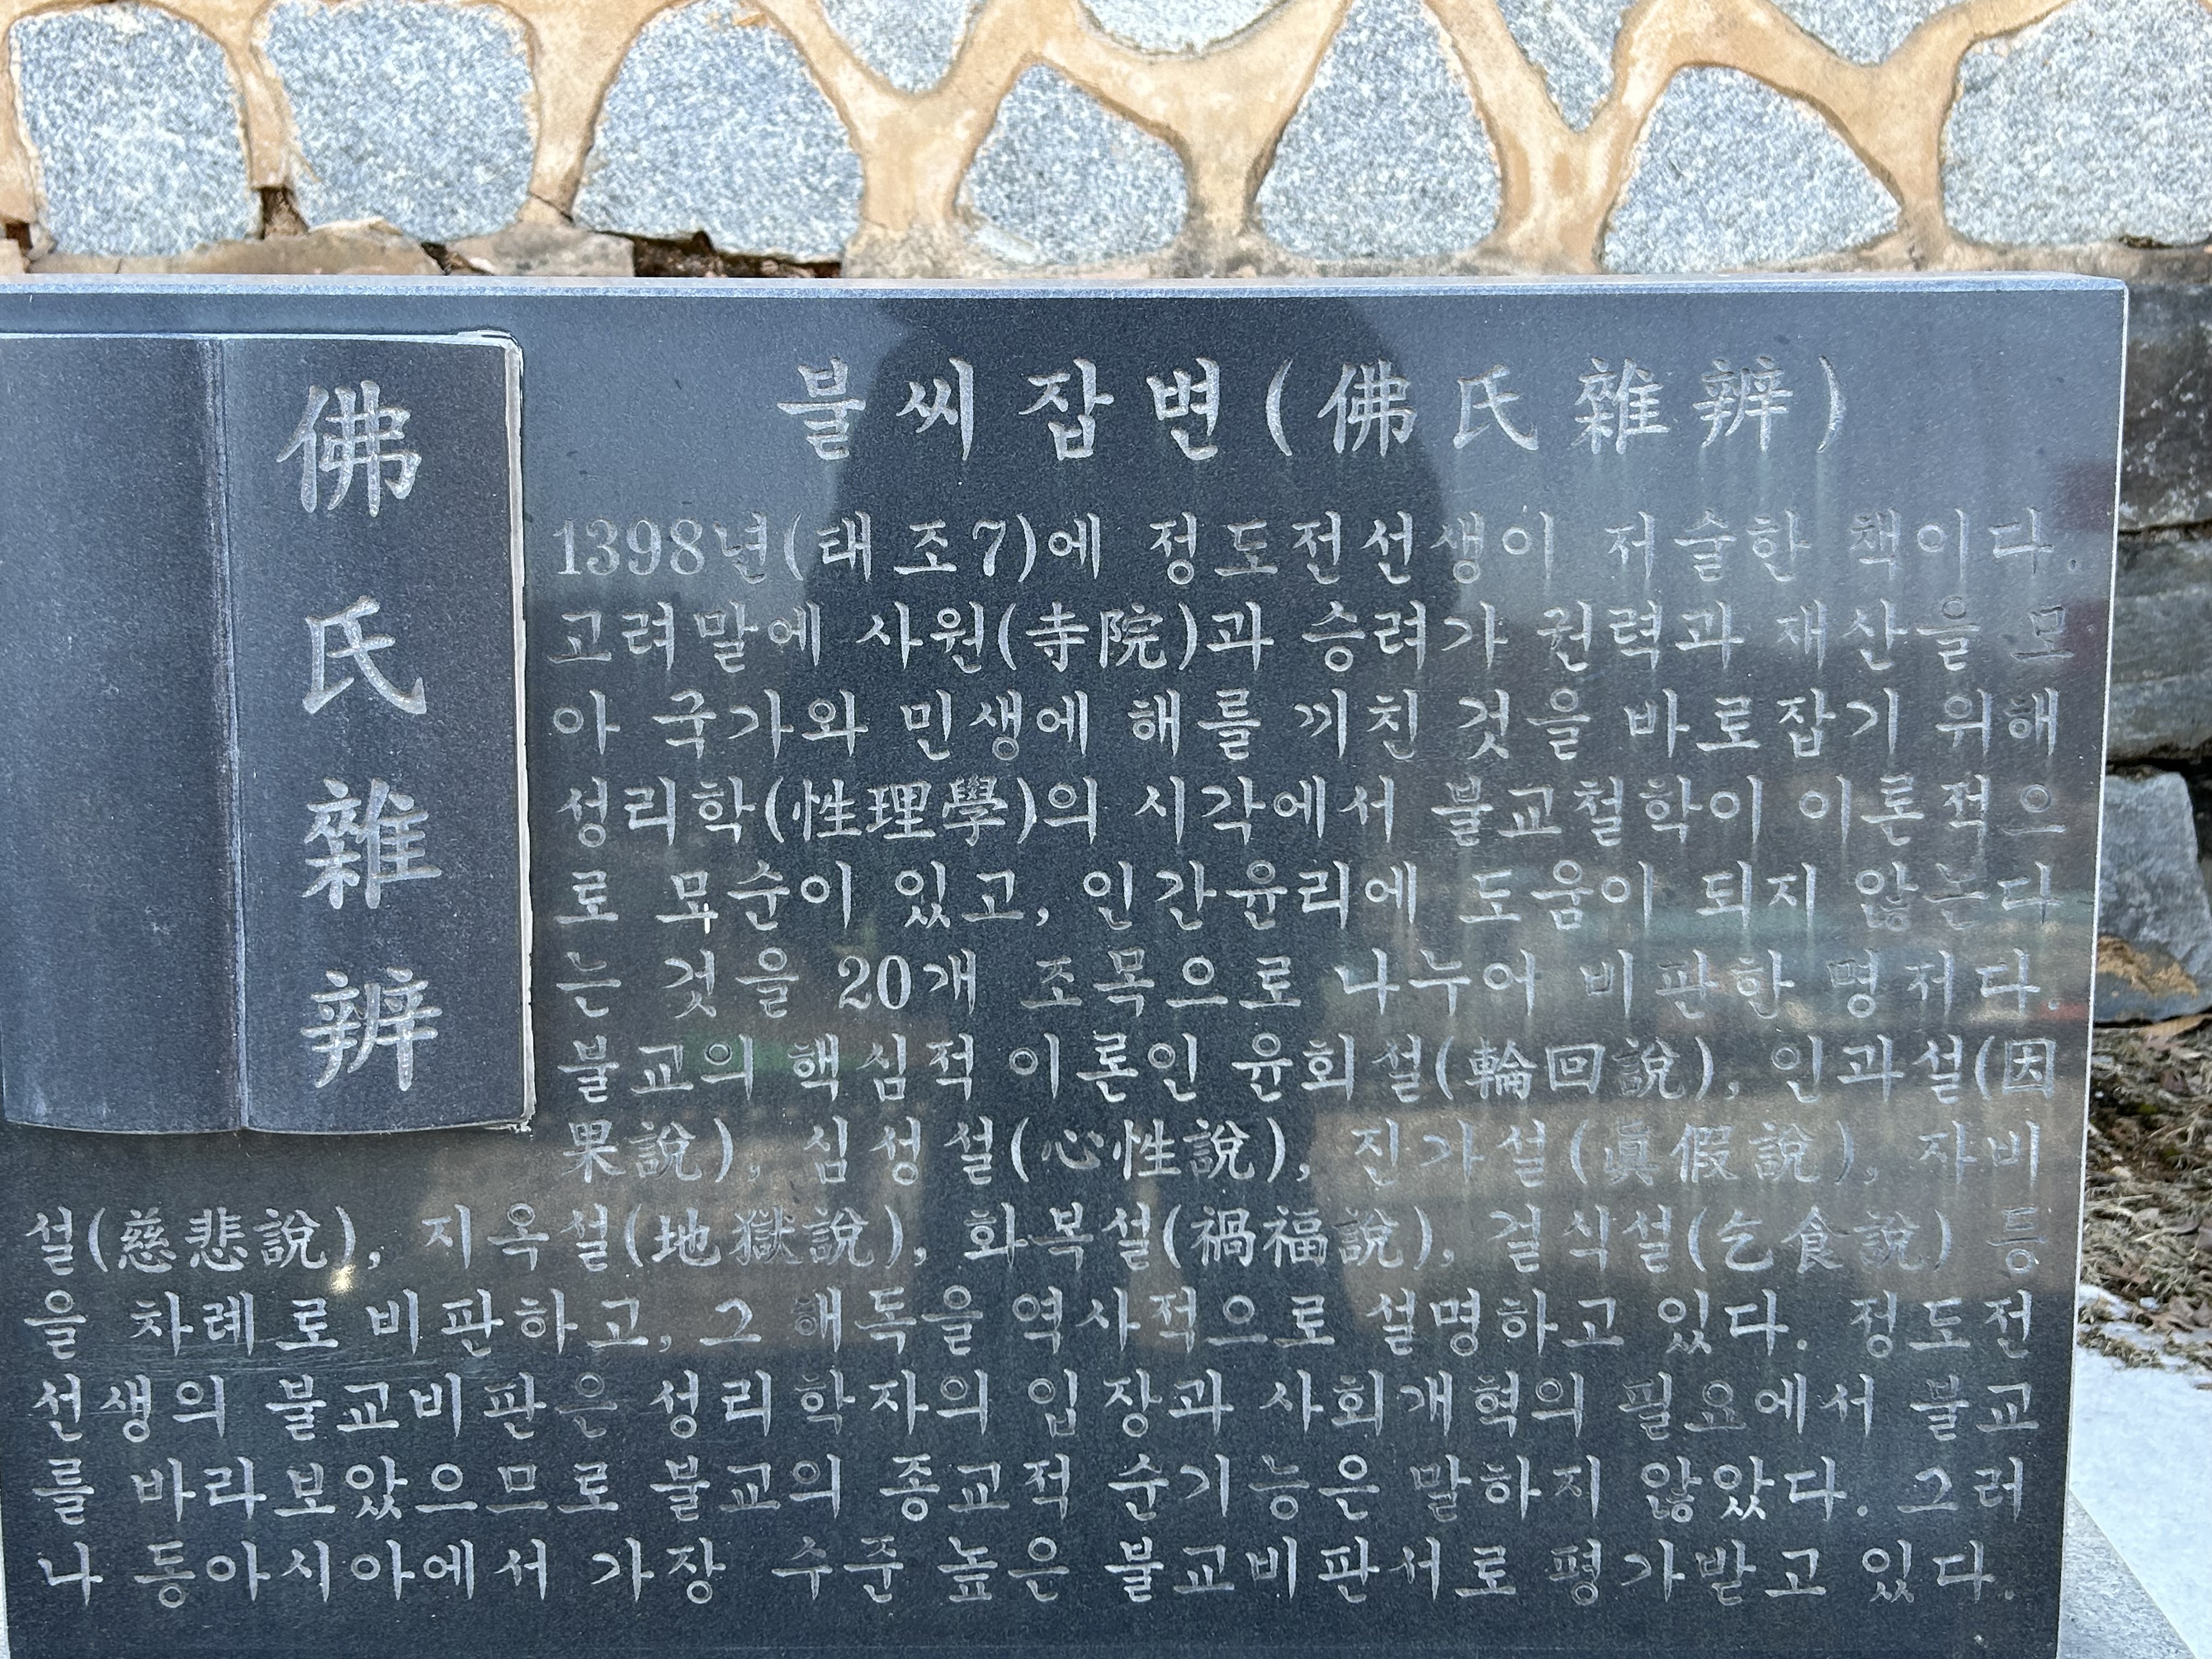 佛氏雜辨
불씨잡변(佛氏雜辨)
1398년(태조7)에 정도전선생이 저술한 책이다.
고려말에 사원(寺院)과 승려가 권력과 재산을 모
아 국가와 민생에 해를 끼친 것을 바로잡기 위해
성리학(性理學)의 시각에서 불교철학이 이론적으
로 모순이 있고, 인간윤리에 도움이 되지 않는다
는 것을 20개 조목으로 나누어 비판한 명저다.
불교의 핵심적 이론인 윤회설(輪回說), 인과설(因
果說), 심성설(心性說), 진가설(眞假說), 자비
설(慈悲說), 지옥설(地獄說), 화복설(禍福說), 걸식설(乞食說) 등
을 차례로 비판하고, 그 해독을 역사적으로 설명하고 있다. 정도전
선생의 불교비판은 성리학자의 입장과 사회개혁의 필요에서 불교
를 바라보았으므로 불교의 종교적 순기능은 말하지 않았다. 그러
나 동아시아에서 가장 수준 높은 불교비판서로 평가받고 있다.